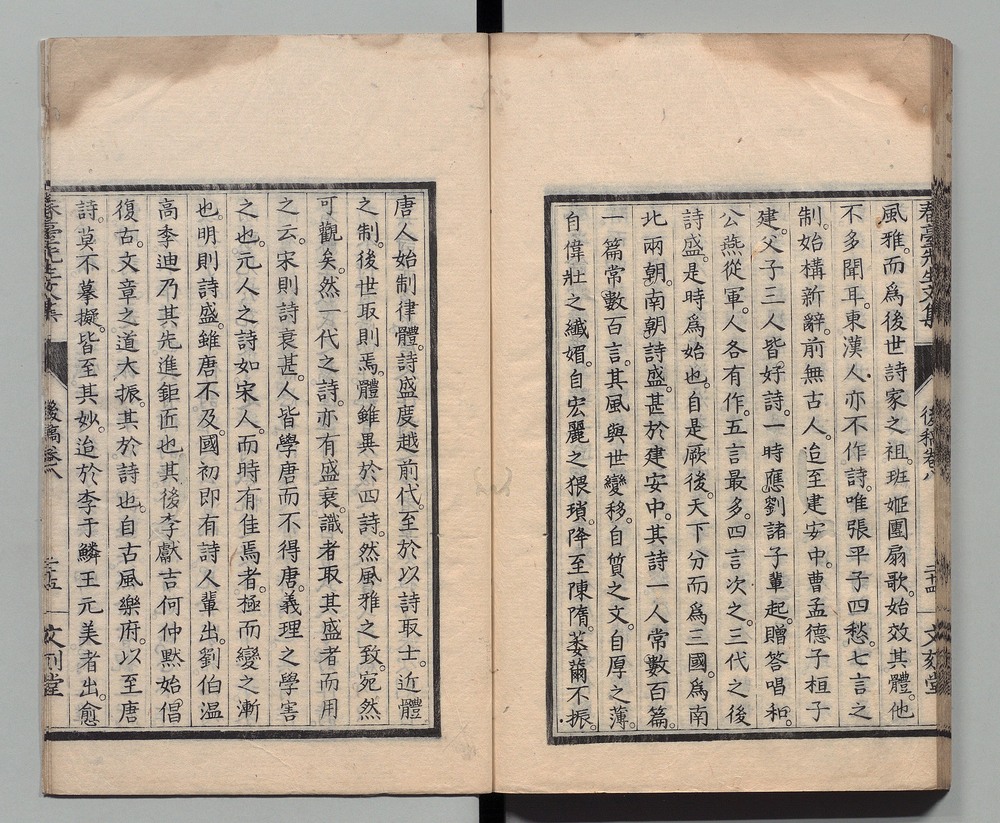 春臺先生文集　後稿卷八　三十四　文刻堂
風雅。而爲後世詩家之祖。班姬團扇歌。始效其體。他
不多聞耳。東漢人亦不作詩。唯張平子四愁。七言之
制。始構新辭。前無古人。迨至建安中。曹孟德子桓子
建。父子三人皆好詩。一時應劉諸子輩起。贈答唱和。
公燕從軍。人各有作。五言最多。四言次之。三代之後
詩盛。是時爲始也。自是厥後。天下分而爲三國。爲南
北兩朝。南朝詩盛。甚於建安中。其詩一人常數百篇。
一篇常數百言。其風與世變移。自質之文。自厚之薄。
自偉壯之纖媚。自宏麗之猥瑣。降至陳隋。萎薾不振。
唐人始制律體。詩盛度越前代。至於以詩取士。近體
之制。後世取則焉。體雖異於四詩。然風雅之致。宛然
可觀矣。然一代之詩。亦有盛衰。識者取其盛者而用
之云。宋則詩衰甚。人皆學唐而不得唐。義理之學害
之也。元人之詩如宋人。而時有佳焉者。極而變之漸
也。明則詩盛。雖唐不及。國初即有詩人輩出。劉伯溫
高李迪乃其先進鉅匠也。其後李獻吉何仲默始倡
復古。文章之道大振。其於詩也。自古風樂府。以至唐
詩。莫不摹擬。皆至其妙。迨於李于鱗王元美者出。愈
春臺先生文集　後稿卷八　三十五　文刻堂